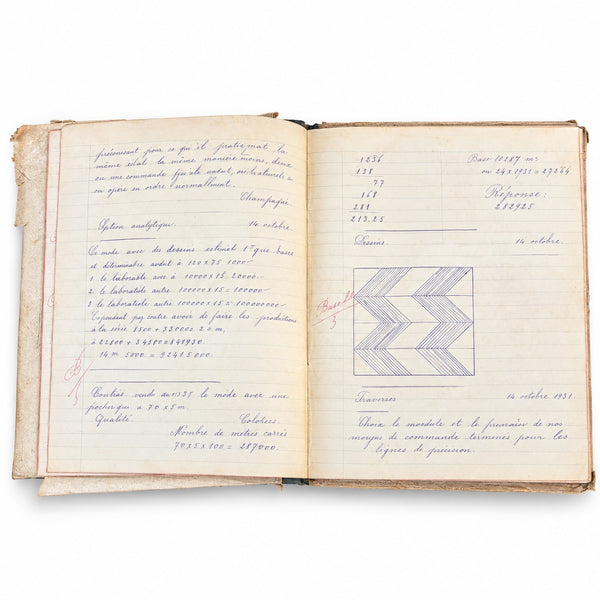 préconisant pour ce qu'il pratiquat la
même état la même manière moins, deux
ou une commande naturels
on opère en ordre normallment.
Champagne.
Option analytique. 14 octobre.
Ce mode avec des dessins estimet 1re que bases
et déterminable avduit à 120 x 75 1000
1 le laborable avec à 10000 x 15, 20000.
2 le laboratiole autre 100000 x 15 = 100000
2 le laboratiole autre 100000 x 15 = 10000000
Cependant par contre avoir de faire les productions
à la série 8500 + 33000 = 20 m,
à 22800 + 34500 = 841930.
14 m 5000 = 92415000.
B
5
Contras vendu du le mode avec une
pocher qui à 70 x 5 m.
Qualité. Coloriers.
Nombre de mètres carrés
70 x 5 x 100 = 287000.
1236
138
77
168
281
213,25
Base 10287 m:
ou 24 x 1931 = 27264
Réponse:
282925
Dessins. 14 octobre.
5
Traverses 14 octobre 1931.
Choix le mordute et le prunaison de nos
moyns de commande terminés pour les
lignes de précison.